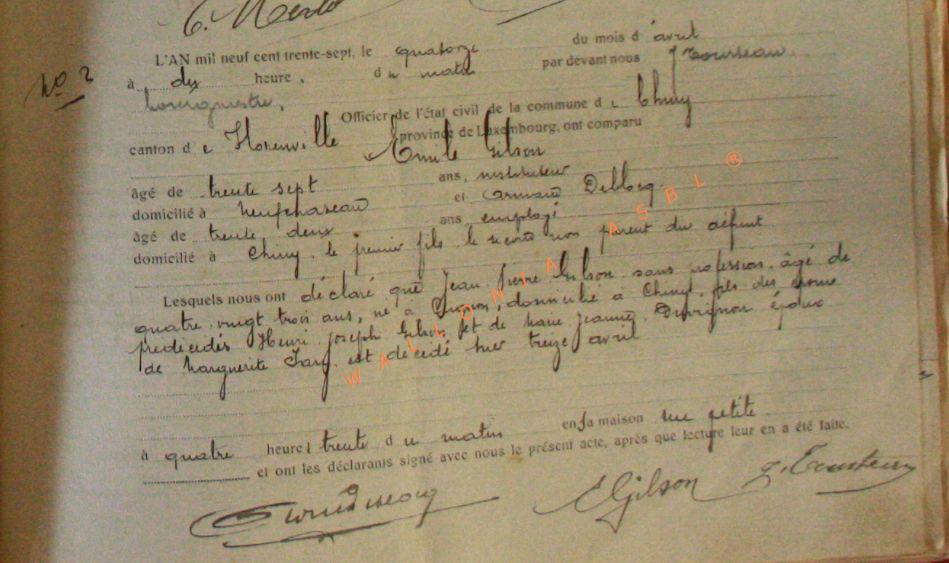 C. Merlo
No 2
L'AN mil neuf cent trente-sept, le quatorze du mois d'avril
à dix heure, du matin par devant nous J Tousseau
bourgmestre, Officier de l'état civil de la commune de Chiny
canton de Florenville province de Luxembourg, ont comparu
Emile Gilson
âgé de trente sept ans, instituteur
domicilié à Neufchateau et Armand Deblocq
âgé de trente deux ans employé
domicilié à Chiny, le premier fils le second non parent du défunt
Lesquels nous ont déclaré que Jean Pierre Gilson sans profession, âgé de
quatre vingt trois ans, né à domicilié à Chiny, fils des époux
prédécédés Henri Joseph Gilson et de Marie Jeanne époux
de Marguerite est décédé hier treize avril
à quatre heures trente du matin en sa maison rue petite
et ont les déclarants signé avec nous le présent acte, après que lecture leur en a été faite.
EGilson
WALLONIA ASBL ®